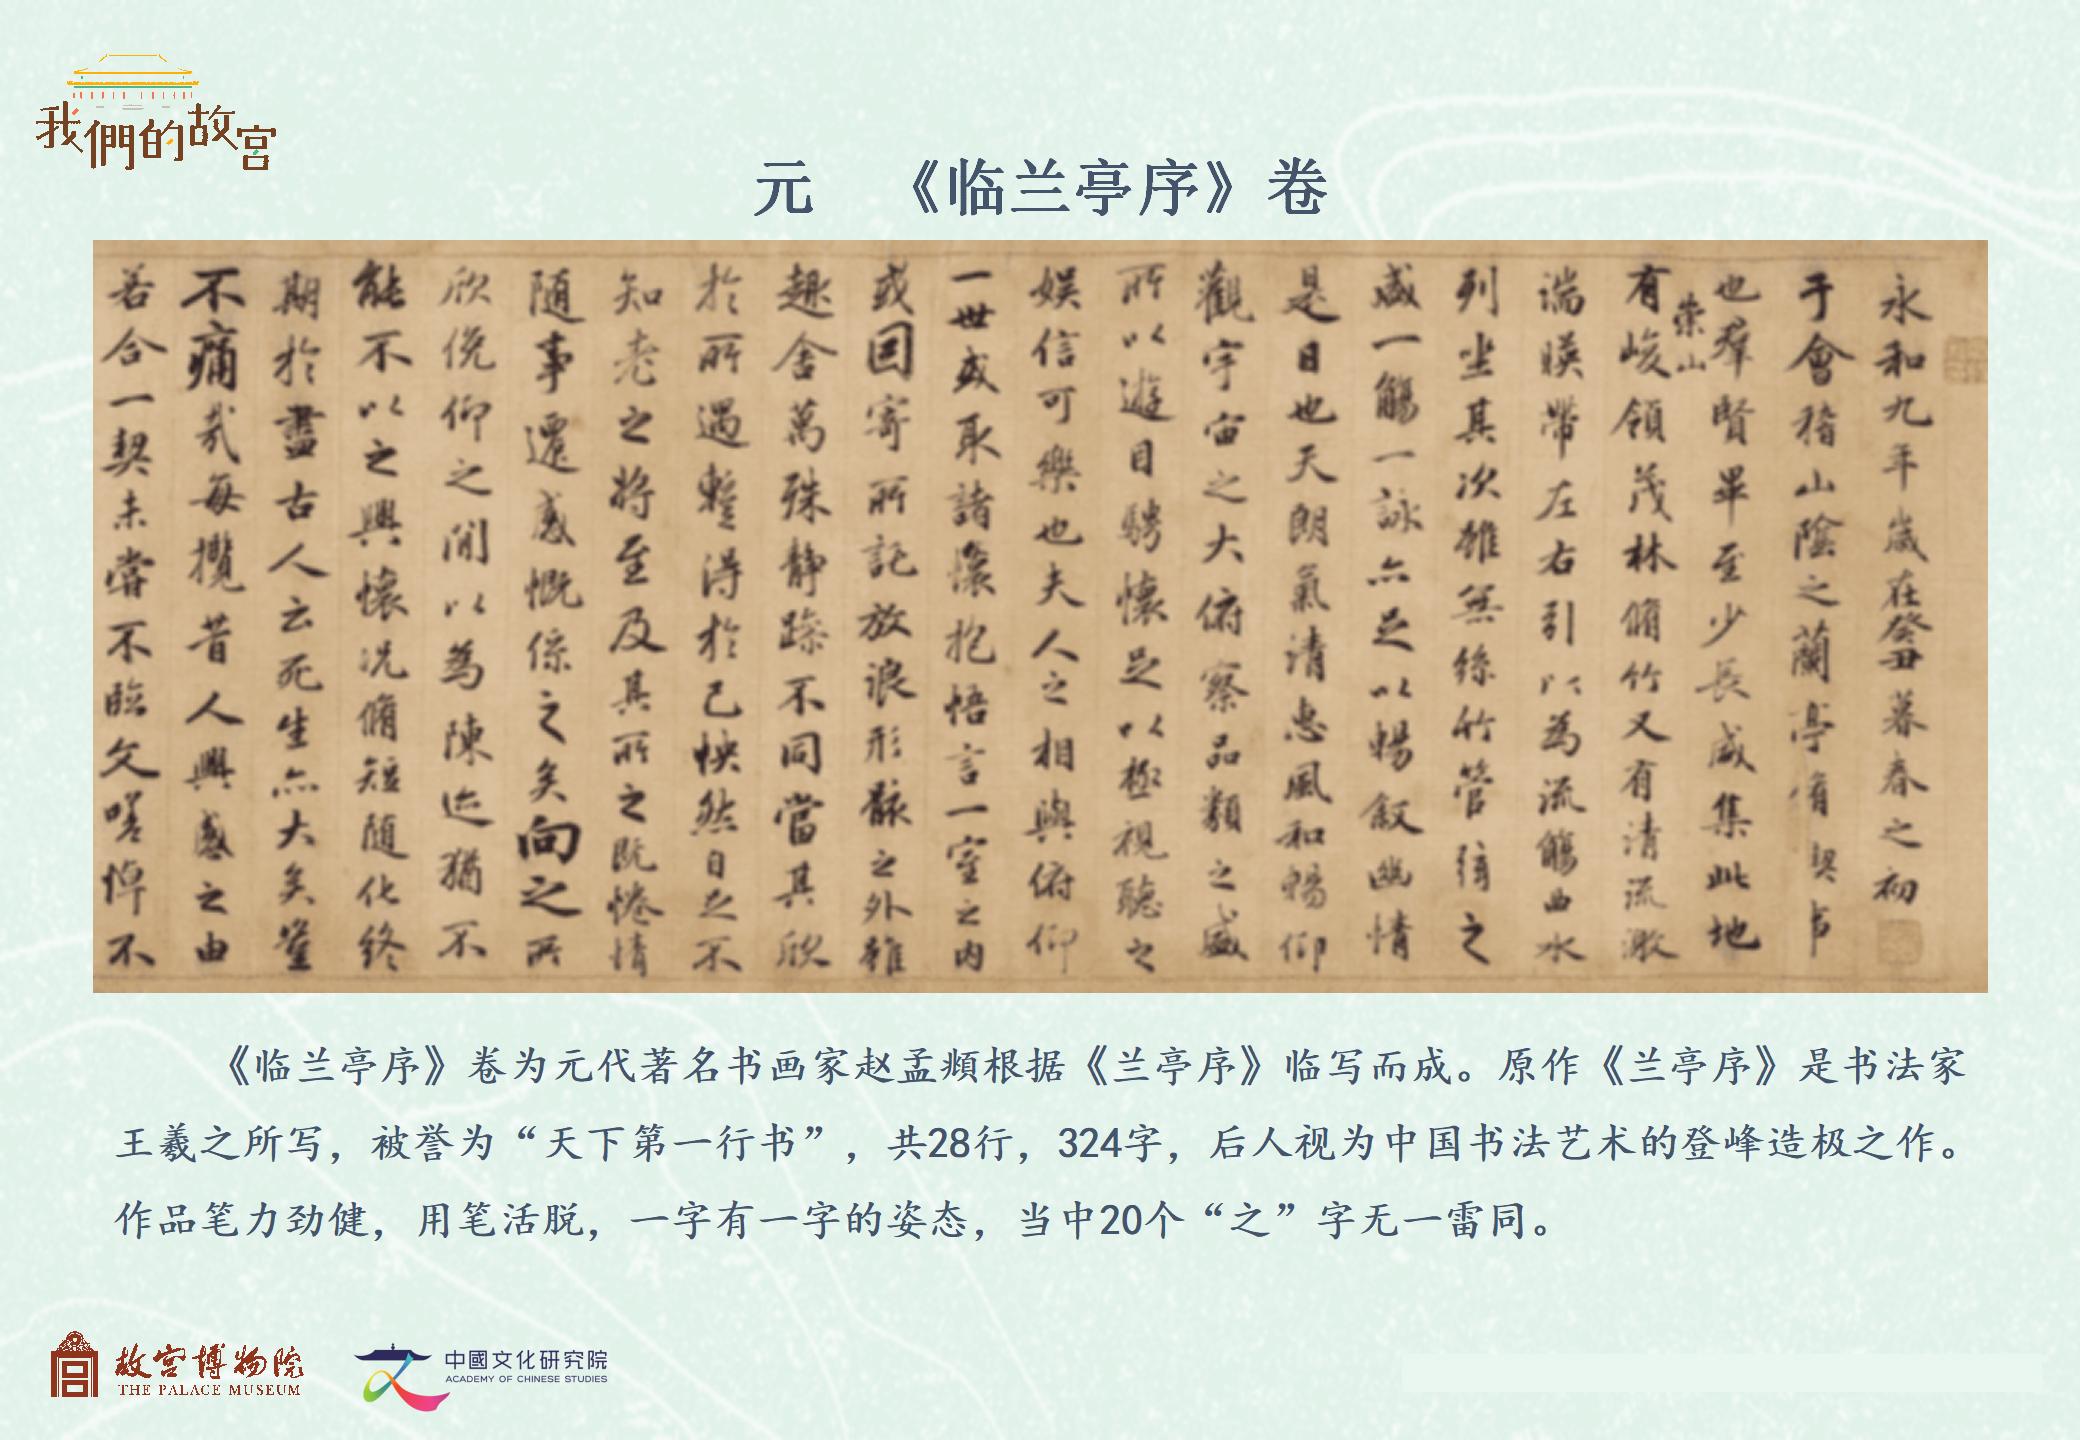 我們的故宫
元 《临兰亭序》卷
永和九年歲在癸丑暮春之初
于會稽山陰之蘭亭脩禊事
也羣賢畢至少長咸集此地
有崇山峻領茂林脩竹又有清流激
湍暎帶左右引以為流觴曲水
列坐其次雖無絲竹管弦之
盛一觴一詠亦足以暢敘幽情
是日也天朗氣清惠風和暢仰
觀宇宙之大俯察品類之盛
所以遊目騁懷足以極視聽之
娛信可樂也夫人之相與俯仰
一世或取諸懷抱悟言一室之內
或因寄所託放浪形骸之外雖
趣舍萬殊靜躁不同當其欣
於所遇暫得於己怏然自足不
知老之將至及其所之既惓情
隨事遷感慨係之矣向之所
欣俛仰之閒以為陳迹猶不
能不以之興懷況脩短隨化終
期於盡古人云死生亦大矣豈
不痛哉每攬昔人興感之由
若合一契未嘗不臨文嗟悼不
《临兰亭序》卷为元代著名书画家赵孟頫根据《兰亭序》临写而成。原作《兰亭序》是书法家
王羲之所写，被誉为“天下第一行书”，共28行，324字，后人视为中国书法艺术的登峰造极之作。
作品笔力劲健，用笔活脱，一字有一字的姿态，当中20个“之”字无一雷同。
故宫博物院
THE PALACE MUSEUM
中國文化研究院
ACADEMY OF CHINESE STUDIES